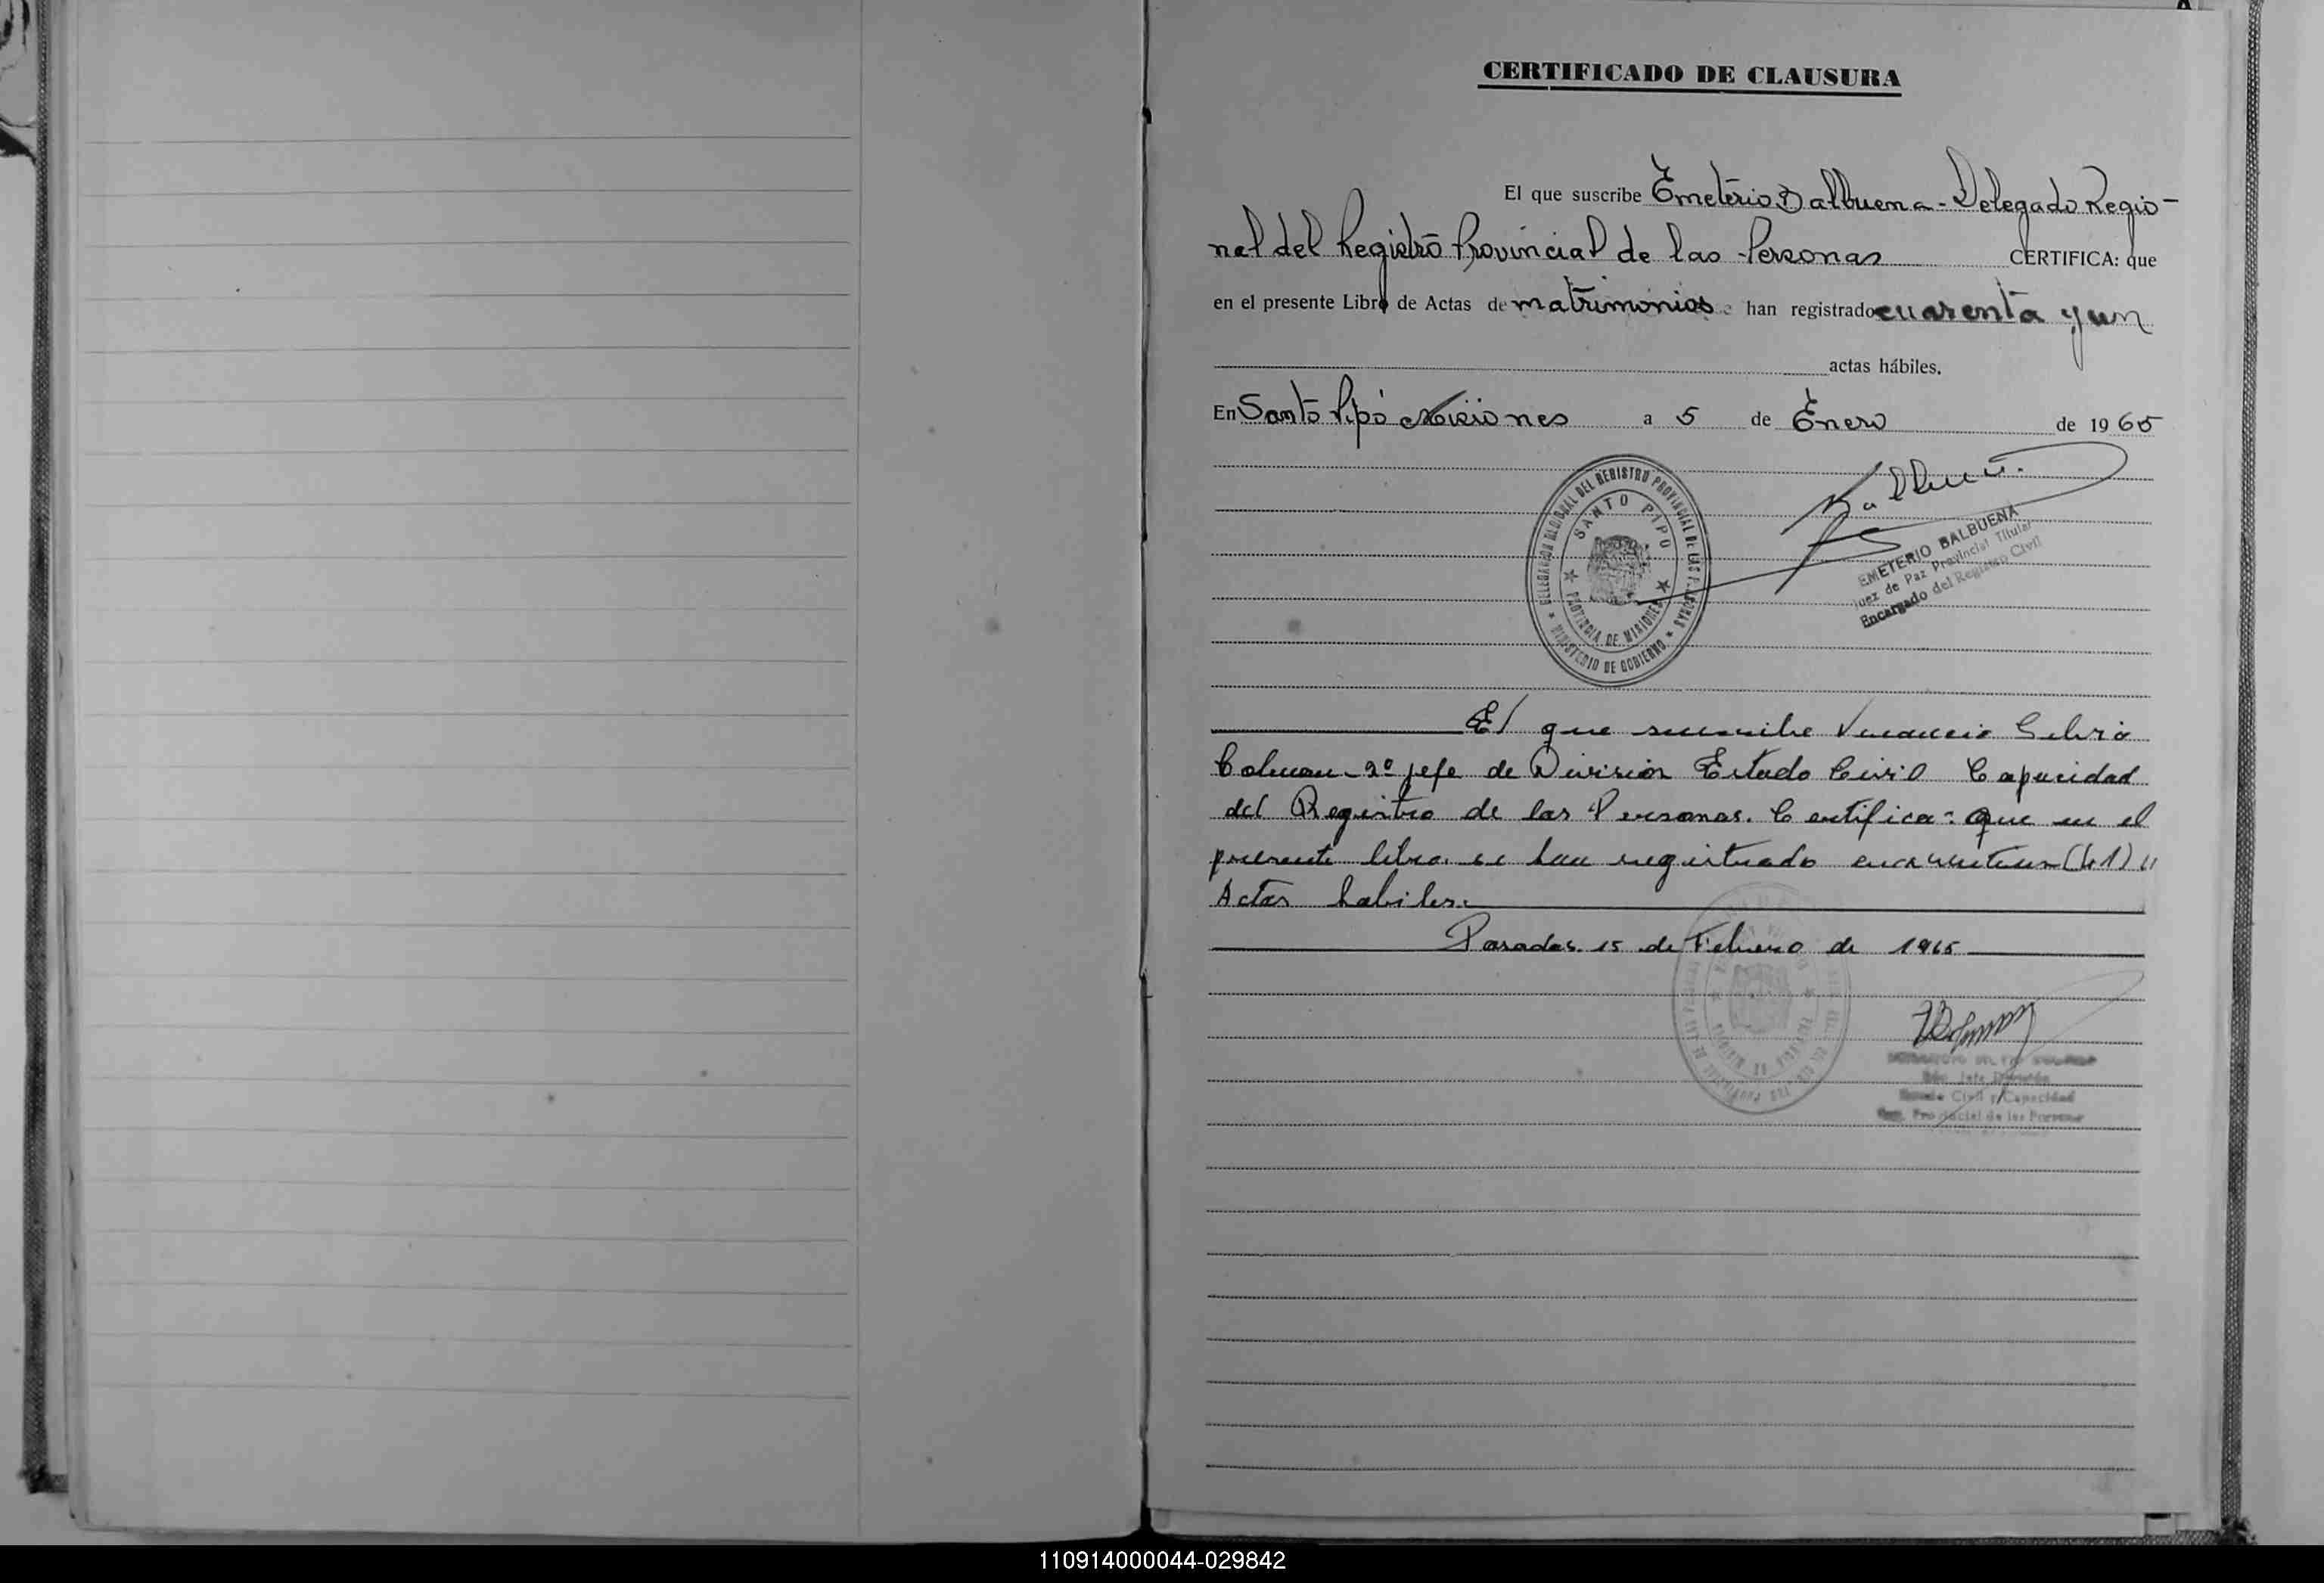 CERTIFICADO DE CLAUSURA
El que suscribe Emeterio Balbuena - Delegado Regio-
nal del Registro Provincial de las Personas CERTIFICA: que
en el presente Libro de Actas de matrimonios se han registrado cuarenta y un
actas hábiles.
En Santo Pipó Misiones a 5 de Enero de 1965
DELEGACION REGIONAL DEL REGISTRO PROVINCIAL DE LAS PERSONAS
SANTO PIPO
PROVINCIA DE MISIONES
MINISTERIO DE GOBIERNO
EMETERIO BALBUENA
Juez de Paz Provincial Titular
Encargado del Registro Civil
El que suscribe Venancio
2º jefe de Division Estado Civil Capacidad
del Registro de las Personas. Certifica: Que en el
presente libro se han registrado (41)
Actas habiles.
Posadas 15 de Febrero de 1965
Jefe División
Civil y Capacidad
Provincial de las Personas
110914000044-029842